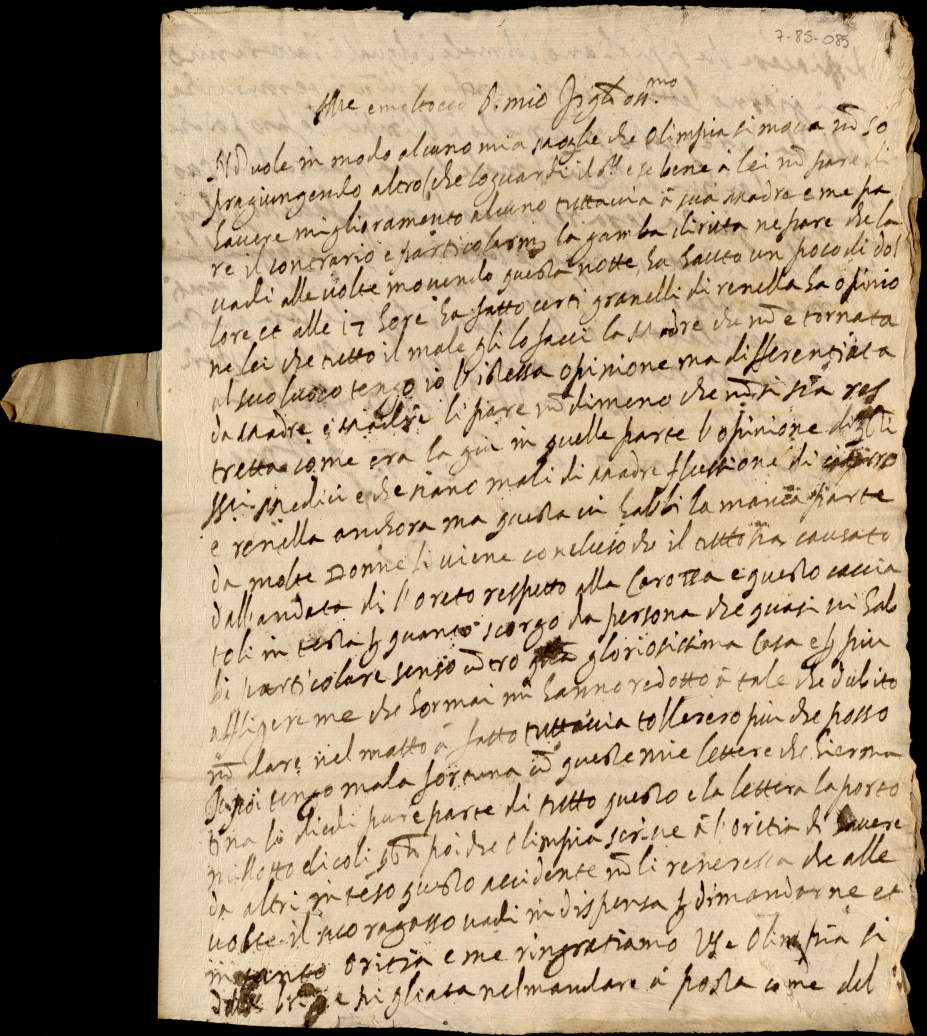 7-85-085
Ill.re e molto ecc.te S. mio osser.mo
Nō vole in modo alcuno mia moglie che Olimpia si mova nō so
pragiungendo altro che lo guardi e se bene a lei nō pare di
havere miglioramento alcuno tuttavia à sua Madre e me pa
re il contrario e particolarm.te la gamba diritta ne pare che la
vadi alle volte movendo questa notte ha hauto un poco di do
lore et alle 17 hore ha fatto certi granelli di renella ha opinio
ne lei che tutto il male gli lo facci la Madre che nō e tornata
al suo luoco tengo io l'istessa opinione ma differentiata
da Madre e Madre li pare nō dimeno che nō si sia res
tretta come era la giu in quelle parte l'opinione di
ssi. Medici e che siano mali di Madre flussione di catarro
e renella anchora ma questa vi habbi la manca parte
da molte Donne si viene concluso che il tutto sia causato
dall'andata di l'oreto respetto alla Carozza e questo caccia
toli in testa p quanto scorgo da persona che quasi vi hab
bi particolare senso cōtro gloriosissima Casa e p piu
affligere me che hormai mi hanno redotto à tale che dubito
nō dare nel matto à fatto tuttavia tollerero piu che posso
Io poi tengo mala fortuna cō queste mie lettere che hiermà
tina lo diedi pure parte di tutto questo e la lettera la porto
poi che Olimpia scrive à l'Oritia di havere
da altri inteso questo accidente nō li rencresca che alle
volte il suo ragasso vadi in dispensa p dimandarne et
in tanto Oritia e me ringratiamo VS e Olimpia si
pigliata nel mandare à posta come del